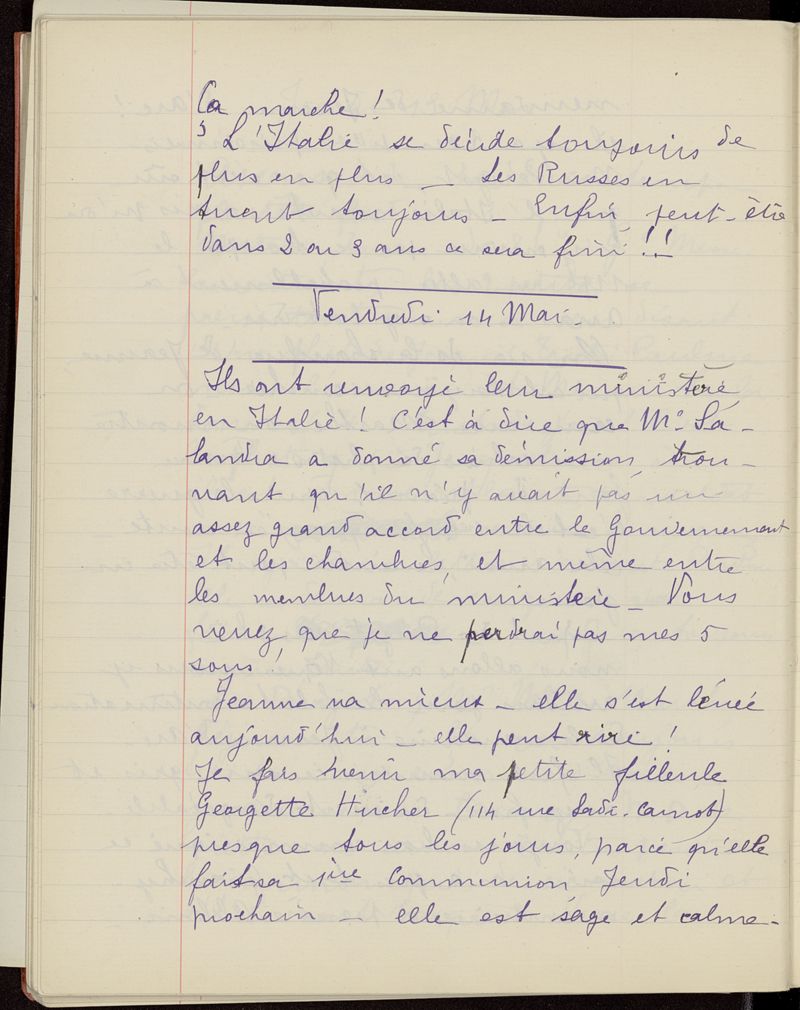 Ça marche !
L'Italie se décide toujours de
plus en plus — Les Russes en
tuent toujours — Enfin, peut-être
dans 2 ou 3 ans ce sera fini !!
Vendredi 14 Mai.
Ils ont renvoyé leur ministère
en Italie ! C'est à dire que Mr. Sa-
landra a donné sa démission, trou-
vant qu'il n'y avait pas un
assez grand accord entre le Gouvernement
et les chambres, et même entre
les membres du ministère — Vous
verrez que je ne perdrai pas mes 5
sous !
Jeanne va mieux — elle s'est levée
aujourd'hui — elle peut rire !
Je fais venir ma petite filleule
Georgette Hircher (114 rue Sadi-Carnot)
presque tous les jours, parce qu'elle
fait sa 1ère Communion Jeudi
prochain — elle est sage et calme -